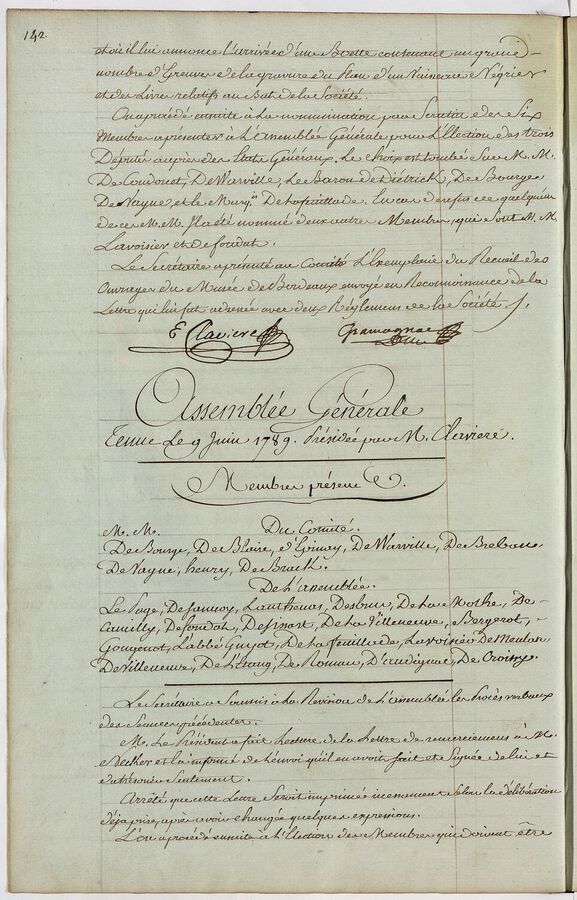 142
et où il lui annonce l'arrivée d'une Boette contenant un grand
nombre d'Epreuves de la gravure du Plan d'un Vaisseau Négrier
et des Livres relatifs au But de la Société.
On a procédé ensuite à la nomination par Scrutin des Six
Membres a présenter à l'assemblée Générale pour l'Election des trois
Députés auprès des Etats Généraux. Le choix est tombé sur M. M.
De Condorcet, De Warville, Le Baron de Dietrick, De Bourge
De Vayne, et le Marq.is De la feuillade. En cas de refus de quelqu'un
de ces M. M. Il a été nommé deux autres Membres, qui Sont M. M.
Lavoisier et de foudat.
Le Secrétaire a présenté au Comité l'Exemplaire du Recueil des
Ouvrages du Musée de Bordeaux envoyé en Reconnoissance de la
Lettre qui lui fut adressée avec deux Règlemens de la Société.
E Claviere Gramagnac
Assemblée Générale
Tenue Le 9 Juin 1789. Présidée par M. Claviere.
Membres présens
M. M. Du Comité.
De Bourge, De Blaire, d'Epinay, De Warville, De Breban,
De Vayne, henry, De Brack.
De L'assemblée.
Le Page, De Jaucoy, Lanthenas, Desbrun, De la Mothe, De
Camilly, De foudat, Desinart, De la Villeneuve, Bergerot,
Gougenot, L'abbé Guyot, De la feuillade, Lavoisier De Meulan
De Villeneuve, De L'étang, De Roman, D'audeigné, De Croismy.
Le Secrétaire a Soumis à la Revision de l'assemblée les Procès verbaux
des Séances précédentes.
M. Le Président a fait Lecture de la Lettre de remerciemens à M.
Necker et l'a informé de l'envoi qu'il en avoit fait et Signée de lui et
du trésorier Seulement.
Arrêté que cette Lettre Seroit imprimée incessament Selon la délibération
déja prise, après avoir changé quelques expressions.
L'on a procédé ensuite à l'Election des Membres qui doivent être